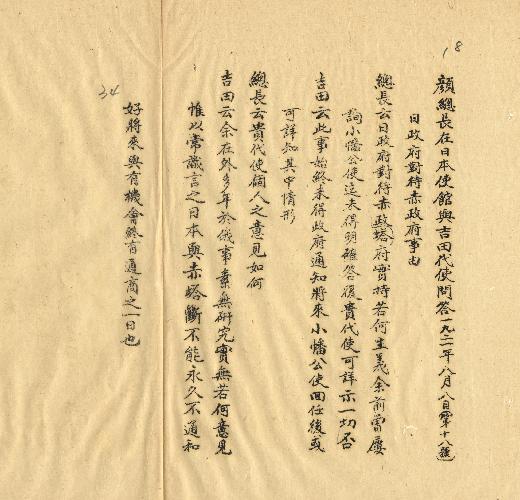 18
顏總長在日本使館與吉田代使問答一九二一年八月八日第十八號
日政府對待赤政府事由
總長云日政府對待赤塔政府實持若何主義余前曾屢
詢小幡公使迄未得明確答復貴代使可詳示一切否
吉田云此事始終未得政府通知將來小幡公使回任後或
可詳知其中情形
總長云貴代使個人之意見如何
吉田云余在外多年於俄事素無研究實無若何意見
惟以常識言之日本與赤塔斷不能永久不通和
好將來與有機會終有通商之一日也
34